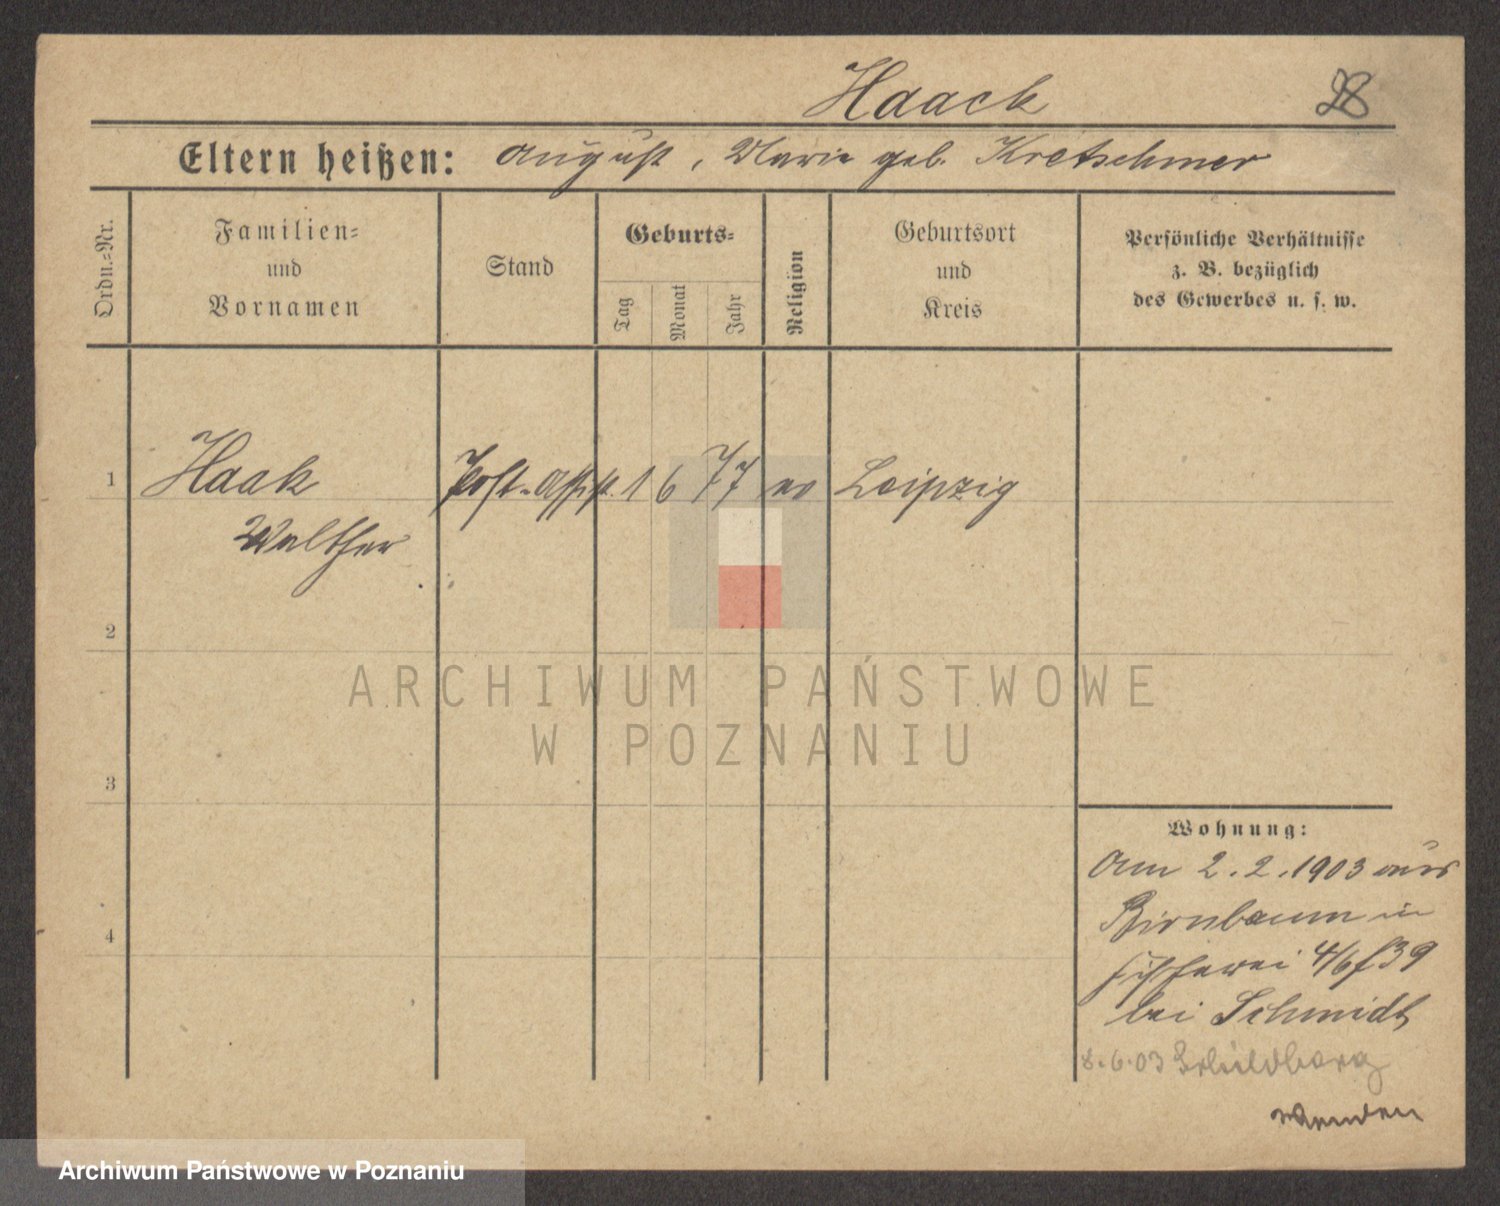 Haack 28
Eltern heißen: August, Marie geb. Kretschmer
Ordn.=Nr.
Familien=
und
Vornamen
Stand
Geburts=
Tag
Monat
Jahr
Religion
Geburtsort
und
Kreis
Persönliche Verhältnisse
z. B. bezüglich
des Gewerbes u. s. w.
1 Haak Post-Assist. 1 6 77 ev Leipzig
Walther
2
3
4
Wohnung:
Am 2.2.1903 aus
Birnbaum in
Fischerei 4/6 f39
bei Schmidt
8.6.03 Schildberg
wenden
ARCHIWUM PAŃSTWOWE
W POZNANIU
Archiwum Państwowe w Poznaniu